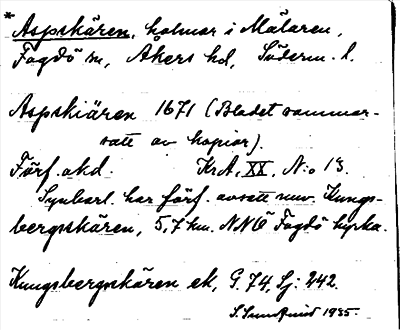 * Aspskären, holmar i Mälaren,
Fogdö sn, Åkers hd, Söderm. l.
Aspskiären 1671 (Bladet sammar-
satt av kopior).
Förf. okd. KrA, XX, N:o 13.
Synbarl. har förf. avsett nuv. Kungs-
bergsskären, 5,7 km. NNÖ Fogdö kyrka.
Kungsbergsskären ek, G. 74, Sj: 242.
S. Sundqvist 1935.